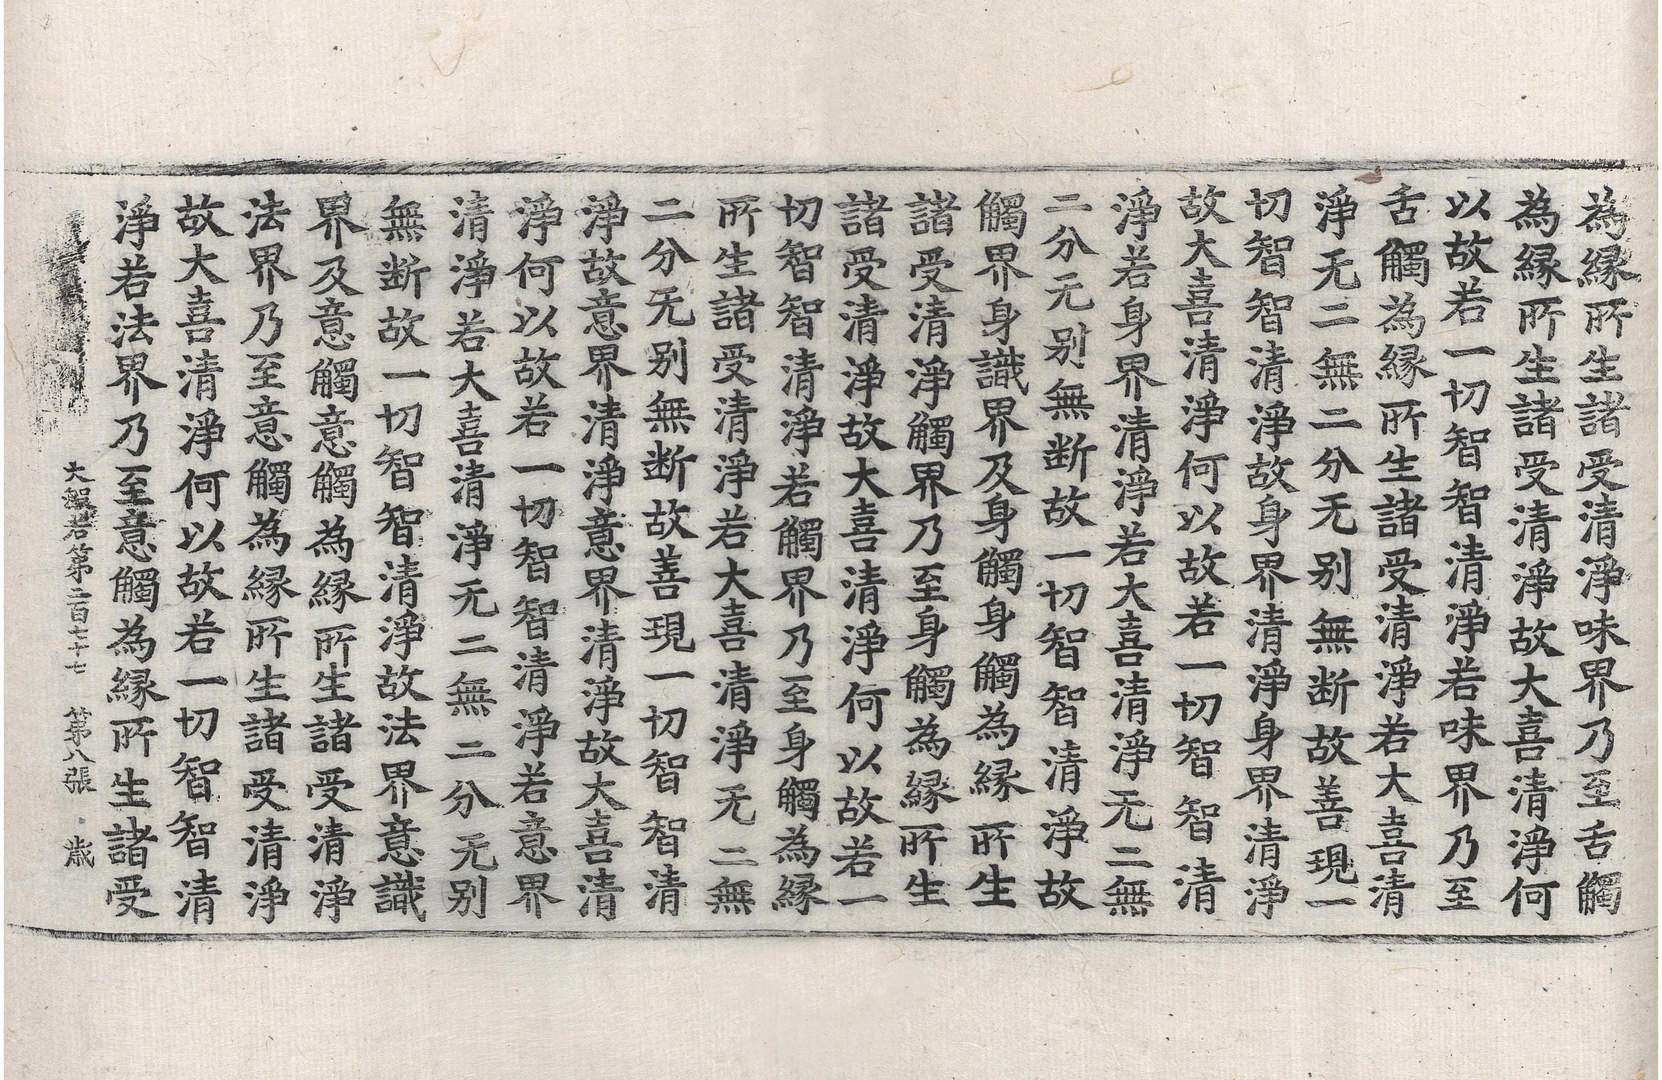 為縁所生諸受清淨味界乃至舌觸
為縁所生諸受清淨故大喜清淨何
以故若一切智智清淨若味界乃至
舌觸為縁所生諸受清淨若大喜清
淨无二無二分无别無断故善現一
切智智清淨故身界清淨身界清淨
故大喜清淨何以故若一切智智清
淨若身界清淨若大喜清淨无二無
二分无别無断故一切智智清淨故
觸界身識界及身觸身觸為縁所生
諸受清淨觸界乃至身觸為縁所生
諸受清淨故大喜清淨何以故若一
切智智清淨若觸界乃至身觸為縁
所生諸受清淨若大喜清淨无二無
二分无别無断故善現一切智智清
淨故意界清淨意界清淨故大喜清
淨何以故若一切智智清淨若意界
清淨若大喜清淨无二無二分无别
無断故一切智智清淨故法界意識
界及意觸意觸為縁所生諸受清淨
法界乃至意觸為縁所生諸受清淨
故大喜清淨何以故若一切智智清
淨若法界乃至意觸為縁所生諸受
大般若第二百七十七 第八張 歳